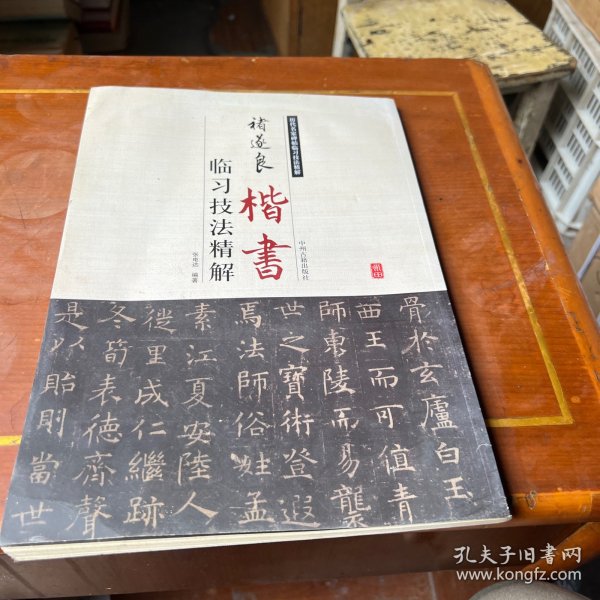 历代名家碑帖临习技法精解
褚遂良
楷書
临习技法精解
编著
中州古籍出版社
骨於玄廬白玉
西王而可值青
師東陵而易襲
世之寶術登遐
焉法師俗姓孟
素江夏安陸人
徙里成仁繼跡
冬筍表德齊聲
是以貽則當世
孔夫子旧书网
www.kongfz.com